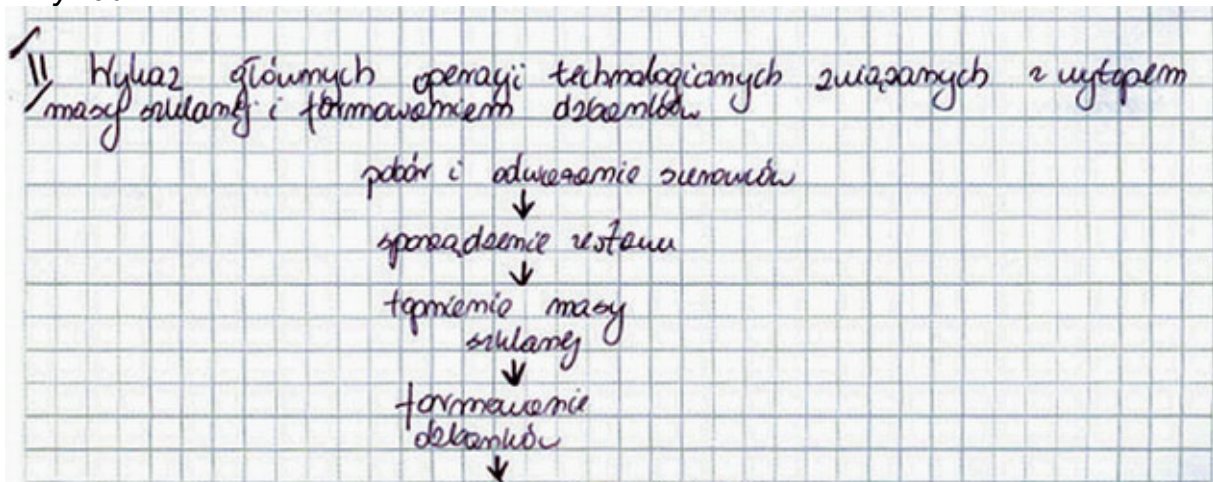 II Wykaz głównych operacji technologicznych związanych z wytopem
masy szklanej i formowaniem dzbanków
pobór i odważenie surowców
↓
sporządzenie zestawu
↓
topnienie masy
szklanej
↓
formowanie
dzbanków
↓